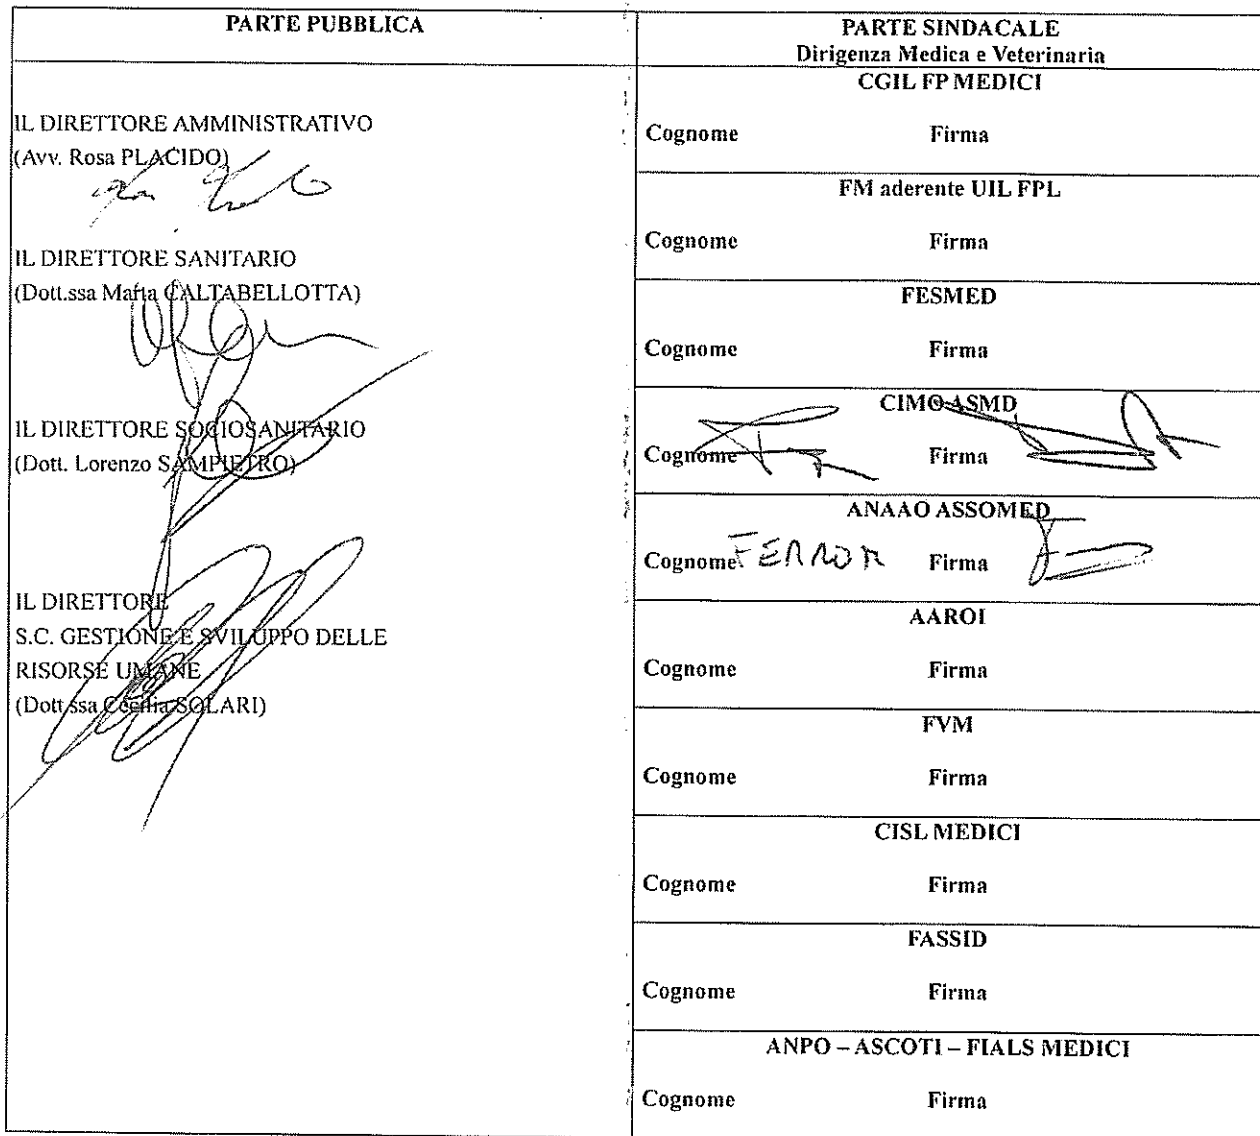 PARTE PUBBLICA
IL DIRETTORE AMMINISTRATIVO
(Avv. Rosa PLACIDO)
IL DIRETTORE SANITARIO
(Dott.ssa Marta CALTABELLOTTA)
IL DIRETTORE SOCIOSANITARIO
(Dott. Lorenzo SAMPIETRO)
IL DIRETTORE
S.C. GESTIONE E SVILUPPO DELLE
RISORSE UMANE
(Dott.ssa Cecilia SOLARI)
PARTE SINDACALE
Dirigenza Medica e Veterinaria
CGIL FP MEDICI
Cognome Firma
FM aderente UIL FPL
Cognome Firma
FESMED
Cognome Firma
CIMO ASMD
Cognome Firma
ANAAO ASSOMED
Cognome Firma
AAROI
Cognome Firma
FVM
Cognome Firma
CISL MEDICI
Cognome Firma
FASSID
Cognome Firma
ANPO – ASCOTI – FIALS MEDICI
Cognome Firma